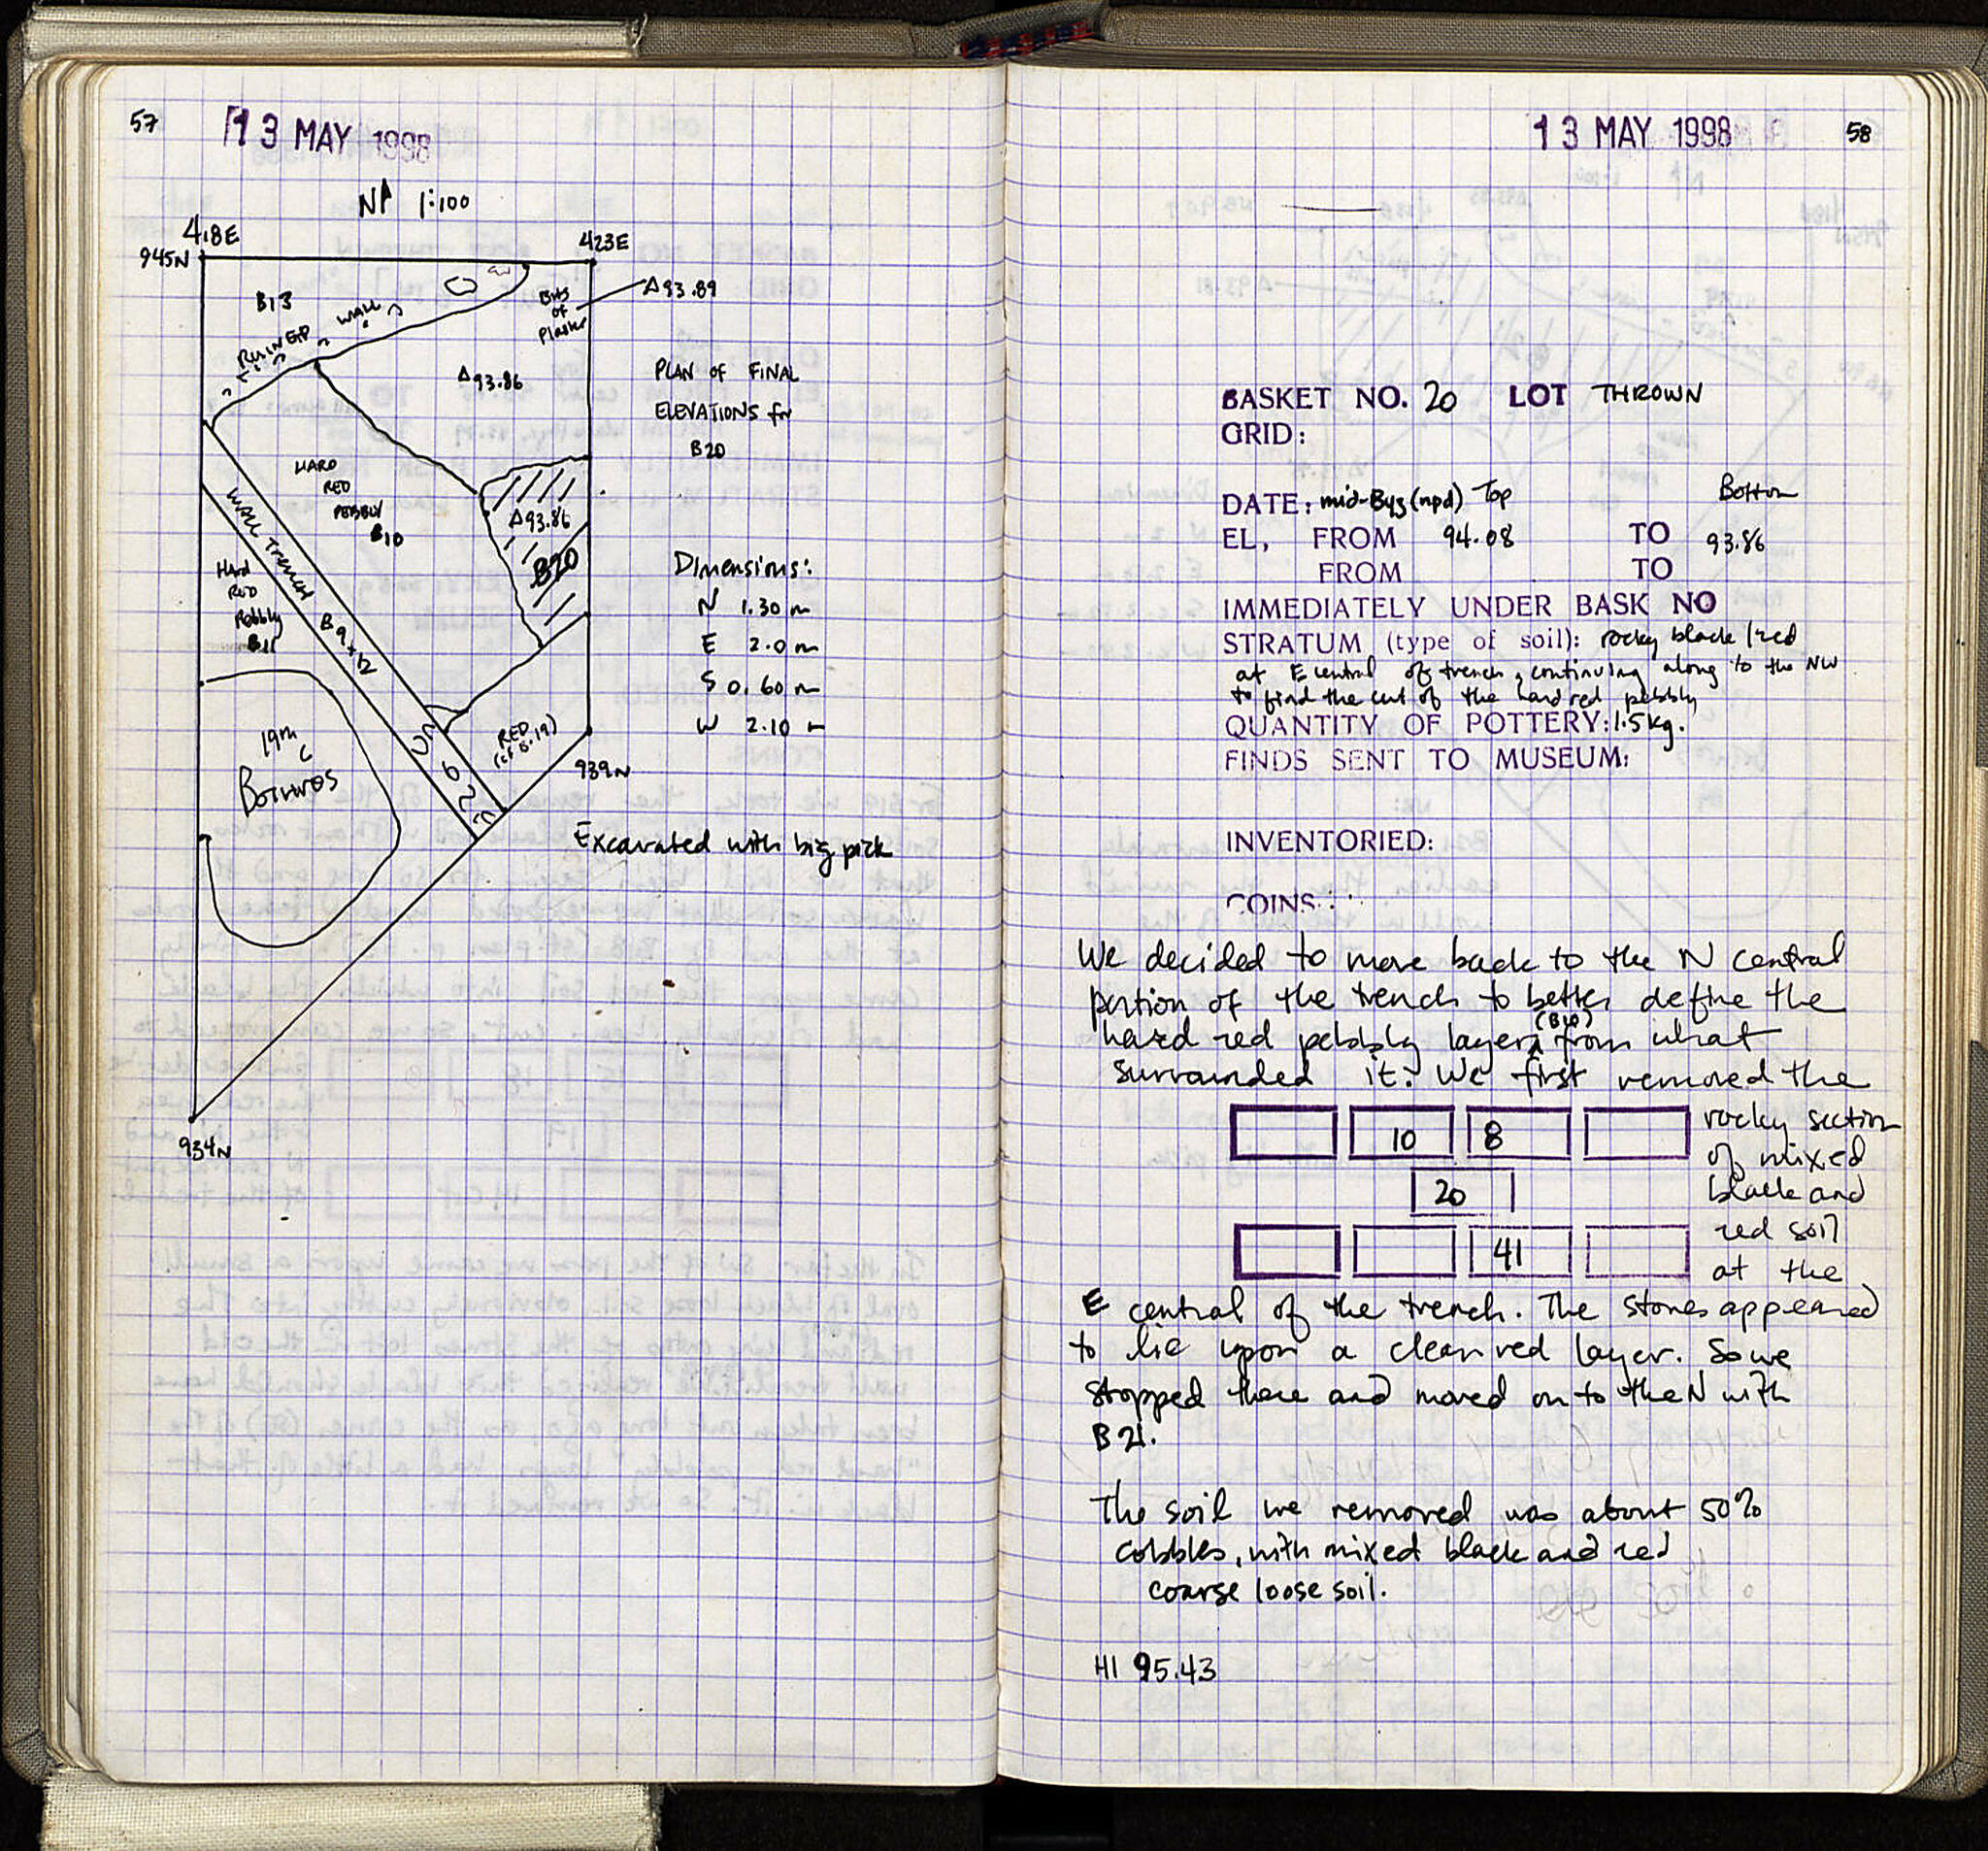 57
13 MAY 1998
N 1:100
418E
423E
945N
B13
RUINED WALL
Bits
of
Plaster
Δ93.89
Δ93.86
PLAN OF FINAL
ELEVATIONS for
B20
HARD
RED
PEBBLY
B10
Δ93.86
B20
WALL TRENCH B9+12
Hard
RED
Pebbly
B11
Dimensions:
N 1.30 m
E 2.0 m
S 0.60 m
W 2.10 m
RED
(cf B.19)
939N
19th c
BOTHROS
Excavated with big pick
934N
13 MAY 1998
58
BASKET NO. 20 LOT THROWN
GRID:
DATE: mid-Byz (npd) Top Bottom
EL, FROM 94.08 TO 93.86
FROM TO
IMMEDIATELY UNDER BASK NO
STRATUM (type of soil): rocky black/red
at E central of trench, continuing along to the NW
to find the cut of the hard red pebbly
QUANTITY OF POTTERY: 1.5 kg.
FINDS SENT TO MUSEUM:
INVENTORIED:
COINS:
We decided to move back to the N central
portion of the trench to better define the
hard red pebbly layer (B10) from what
surrounded it. We first removed the
10 8 rocky section
of mixed
20 black and
red soil
41 at the
E central of the trench. The stones appeared
to lie upon a clean red layer. So we
stopped there and moved on to the N with
B21.
The soil we removed was about 50%
cobbles, with mixed black and red
coarse loose soil.
HI 95.43